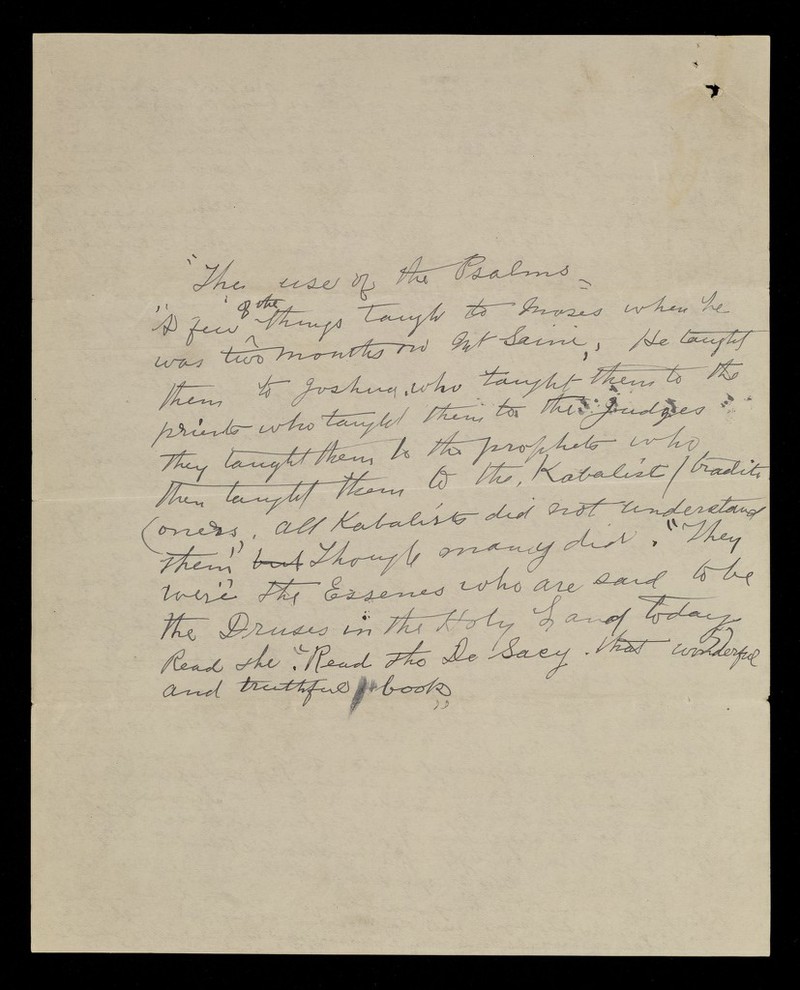 "The use of the Psalms –
"A few of the things taught to Moses when he
was two months on Mt Saini, He taught
them to Joshua, who taught them to the
priests who taught them to the judges
they taught them to the prophets who
then taught them to the, Kabalist / traditi
(oners, all Kabalists did not understand
them" but Though many did." They
were the Essenes who are said to be
the Druses in the Holy Land today
Read the "Read the De Sacy. that wonderful
and truthful book"